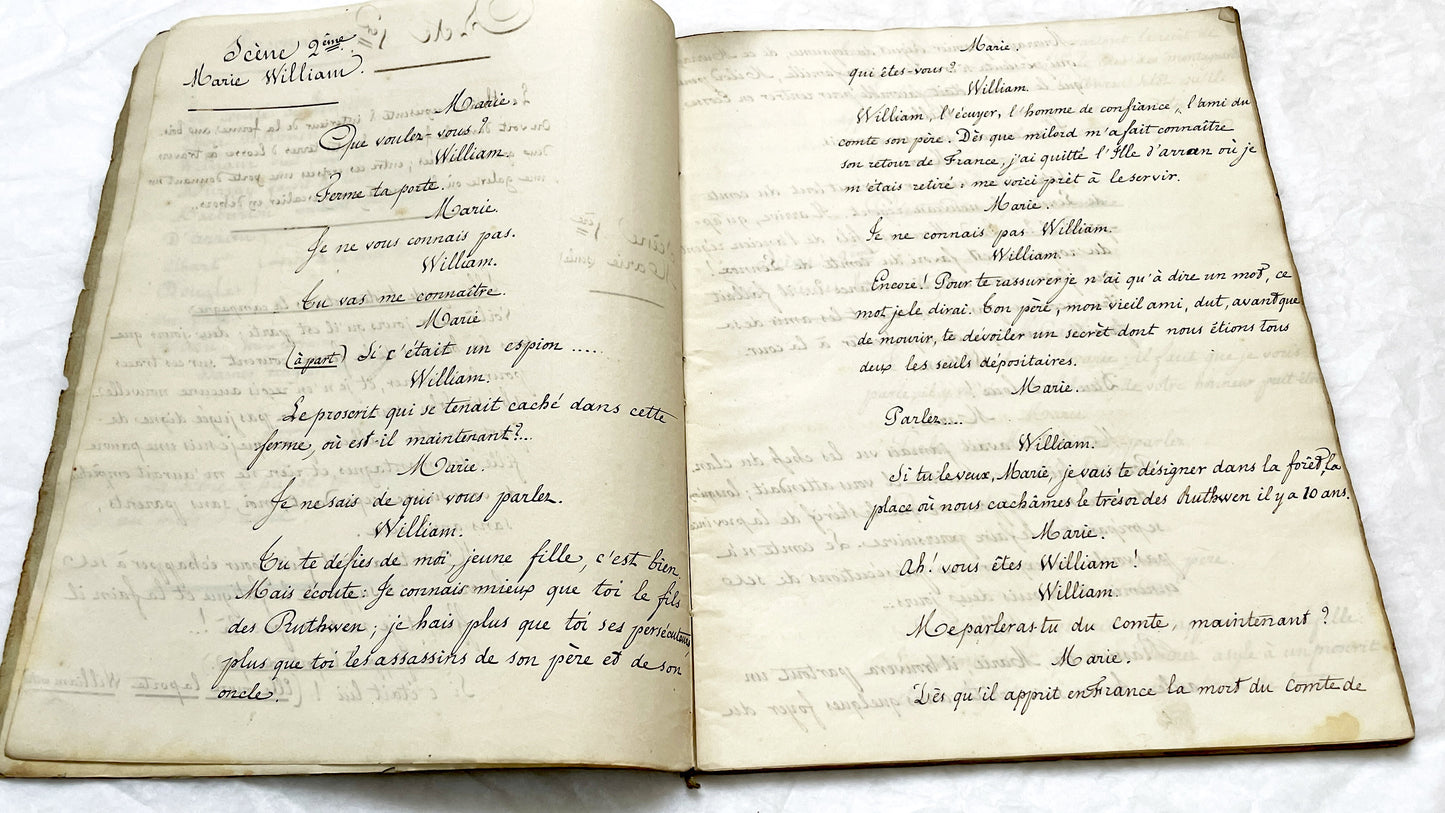 Scène 2ème
Marie William.
Marie.
Que voulez-vous?
William.
Ferme ta porte.
Marie.
Je ne vous connais pas.
William.
Tu vas me connaître.
Marie
(à part) Si c'était un espion ......
William.
Le proscrit qui se tenait caché dans cette
ferme, où est-il maintenant?...
Marie.
Je ne sais de qui vous parlez.
William.
Tu te défies de moi, jeune fille, c'est bien.
Mais écoute: Je connais mieux que toi le fils
des Ruthwen; je hais plus que toi ses persécuteurs,
plus que toi les assassins de son père et de son
oncle.
Marie.
qui êtes-vous?
William.
William, l'écuyer, l'homme de confiance, l'ami du
comte son père. Dès que milord m'a fait connaître
son retour de France, j'ai quitté l'Ille d'arran où je
m'étais retiré: me voici prêt à le servir.
Marie.
Je ne connais pas William.
William.
Encore! Pour te rassurer je n'ai qu'à dire un mot, ce
mot je le dirai. Ton père, mon vieil ami, dut, avant que
de mourir, te dévoiler un secrèt dont nous étions tous
deux les seuls dépositaires.
Marie.
Parlez....
William.
Si tu le veux, Marie, je vais te désigner dans la forêt, la
place où nous cachâmes le trésor des Ruthwen il y a 10 ans.
Marie.
Ah! vous êtes William!
William.
Me parleras tu du comte, maintenant?
Marie.
Dès qu'il apprit en France la mort du Comte de